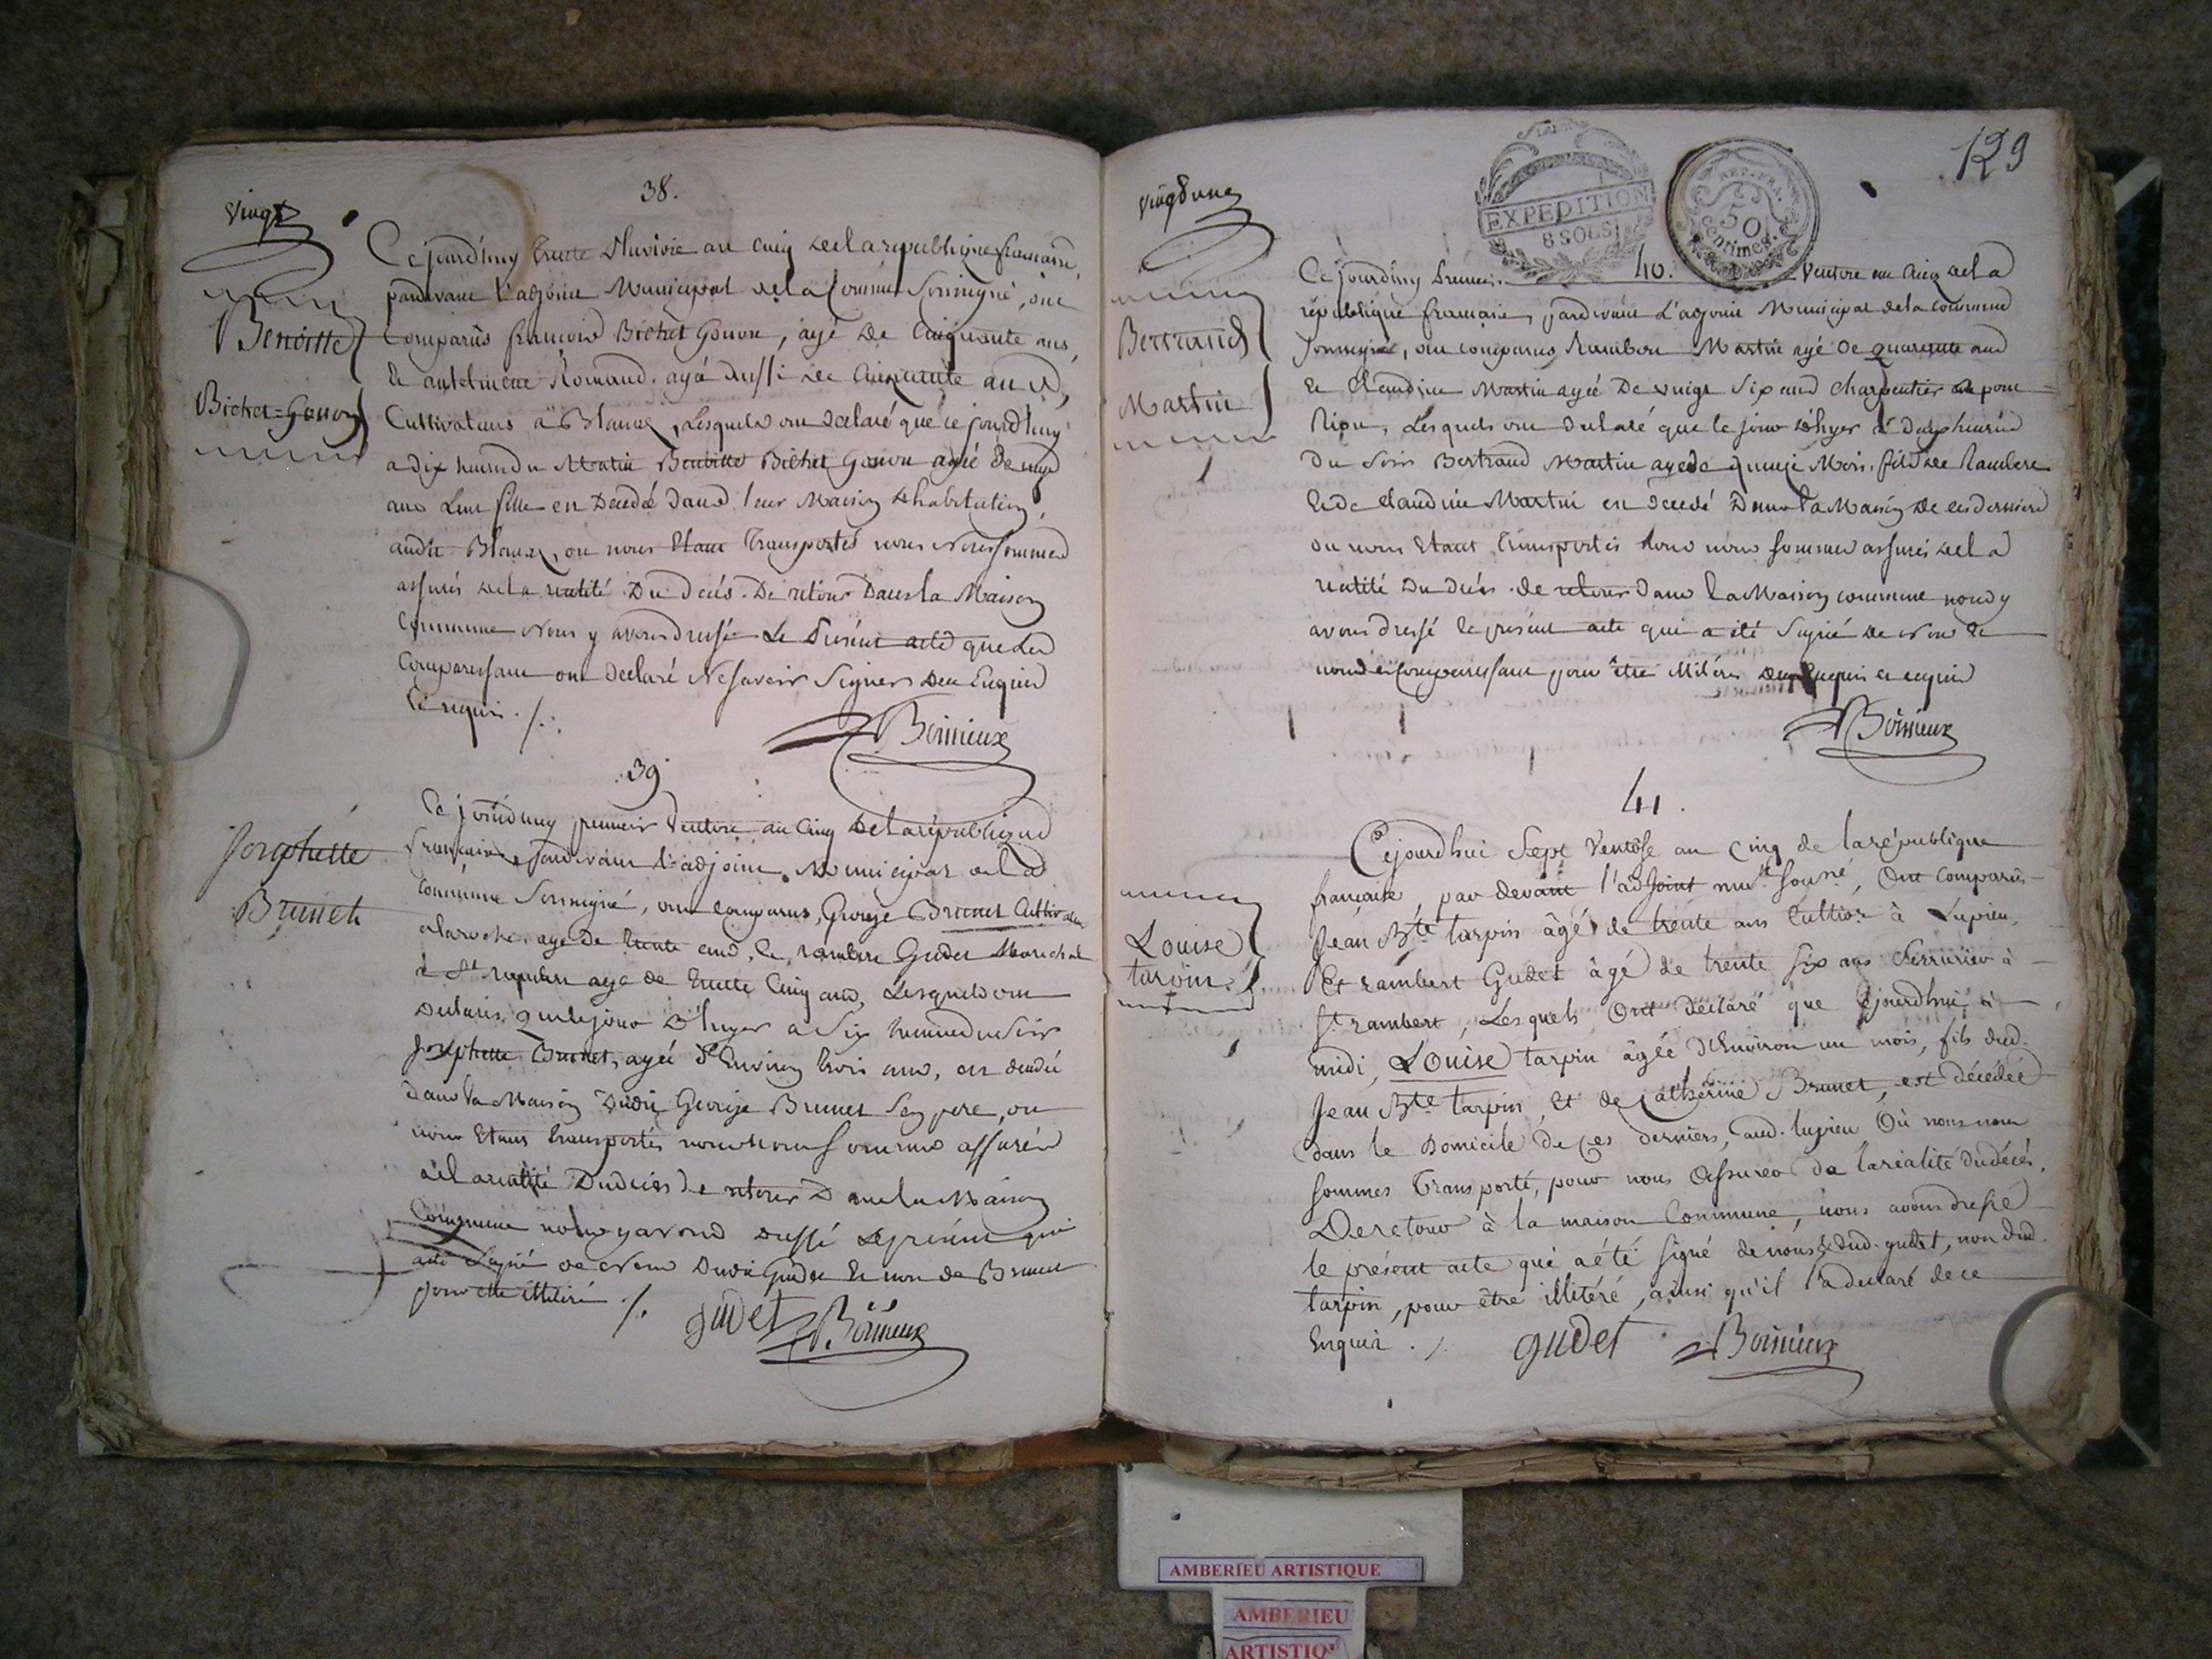 vingt
38.
Benoitte
Bichet-Gonon
Cejourdhuy trente Pluviose an cinq de la republique francaise,
pardevant l'adjoint Municipal de la Commune Soussigné, ont
Comparus francois Bichet Gonon, agé de Cinquante ans,
et anthelmette Romand. agé aussi de Cinquante ans,
Cultivateurs a Blanaz, Lesquels ont declaré que ce jourdhuy
a dix heures du Matin Benoitte Bichet Gonon agée de
ans Leur fille est Decedée dans leur Maison d'habitation,
audit Blanaz, ou nous Etant Transportés nous Nous sommes
assurés de la realité Du decés. De retour Dans la Maison
Commune Nous y avons dressé Le Présent acte que Les
Comparessant ont declaré Ne savoir Signer Dece Enquis
et requis ./.
Boinieux
39
Josephette
Brunet
Ce jourdhuy premier Ventose an Cinq de la république
francaise, pardevant l'adjoint Municipal de la
Commune Soussigné, ont comparus, George Brunet Cultivateur
alaroche, agé de trente ans, et rambert Gudet Marechal
à St rambert agé de trente Cinq ans, Lesquels ont
declarés que le jour D'hyer a Six heures du Soir
Josephette Brunet, agée d'Environ trois ans, est decedée
dans la Maison Dudit George Brunet Son pere, ou
nous Etant transportés nous nous sommes assurés
de la realité Du decés de retour Dans la Maison
Commune nous y avons dressé Le présent qui
a été Signé de Nous Dudit Gudet et non de Brunet
pour etre illiteré ./.
gudet Boinieux
129
EXPEDITION
8 SOLS
REP. FRA.
50
Centimes.
vingt une
40.
Bertrand
Martin
Ce jourdhuy Premier Ventose an Cinq de la
république francaise, pardevant L'adjoint Municipal de la commune
Soussigné, ont comparus Rambert Martin agé de quarante ans
et Claudine Martin agée De vingt Six ans charpentier
Lesquels ont declaré que le jour d'hyer à
Du Soir Bertrand Martin agé de Mois, fils de Rambert
et de Claudine Martin est decedé Dans la Maison de ces derniers
ou nous Etant Transportés Nous nous sommes assurés de la
realité Du decés. de retour dans la Maison commune nous y
avons dressé le présent acte qui a été Signé de Nous et
non des Comparessant pour être illiterés Dece Enquis et requis
Boinieux
41.
Louise
tarpin
Cejourdhui Sept Ventôse an cinq de la république
française, par devant l'adjoint mu.al sousné, Ont Comparûs
Jean Bte tarpin âgé de trente ans Cultivr à Lupieu,
Et rambert Gudet âgé de trente six ans Serrurier à
St rambert, Lesquels Ont déclaré que Cejourdhui, à
midi, Louise tarpin âgée d'Environ un mois, fils dud.
Jean Bte tarpin, et de Cathérine Brunet, est décédée
dans le Domicile de Ces derniers, aud. lupieu Où nous nous
sommes Transporté, pour nous assurer de la réalité du décès.
De retour à la maison Commune, nous avons dressé
le présent acte qui a été signé de nous & dud. gudet, non dud.
tarpin, pour être illitéré, ainsi qu'il l'a declaré de ce
Enquis ./.
gudet Boinieux
AMBERIEU ARTISTIQUE
AMBERIEU
ARTISTIQ